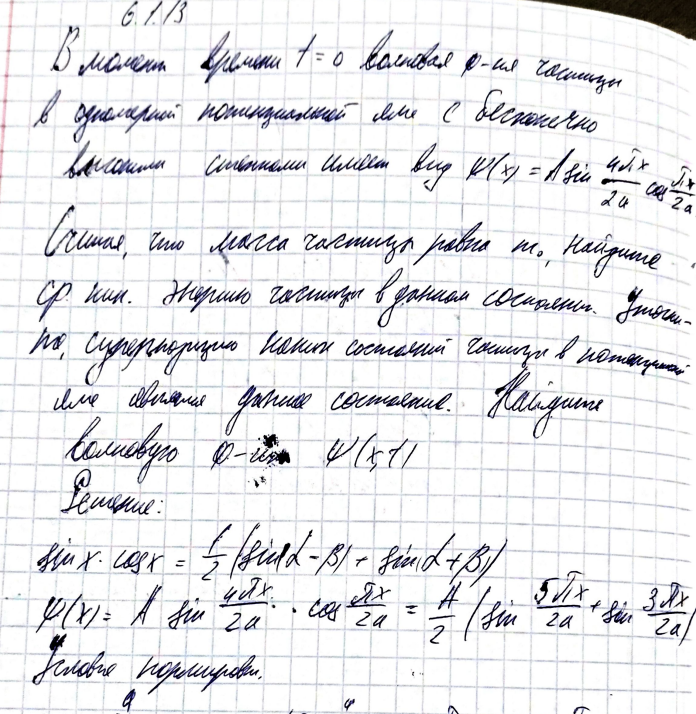 6.1.13
В момент времени t=0 волновая ф-ия частицы
в одномерной потенциальной яме с бесконечно
высокими стенками имеет вид Ψ(x) = A sin 4πx/2a cos πx/2a
Считая, что масса частицы равна m₀, найдите
ср. кин. энергию частицы в данном состоянии. Уточни-
те, суперпозицию каких состояний частицы в потенциальной
яме является данное состояние. Найдите
волновую ф-ию Ψ(x,t)
Решение:
sin x · cos x = 1/2 (sin(α-β) + sin(α+β))
Ψ(x) = A sin 4πx/2a · cos πx/2a = A/2 (sin 5πx/2a + sin 3πx/2a)
Условие нормировки.